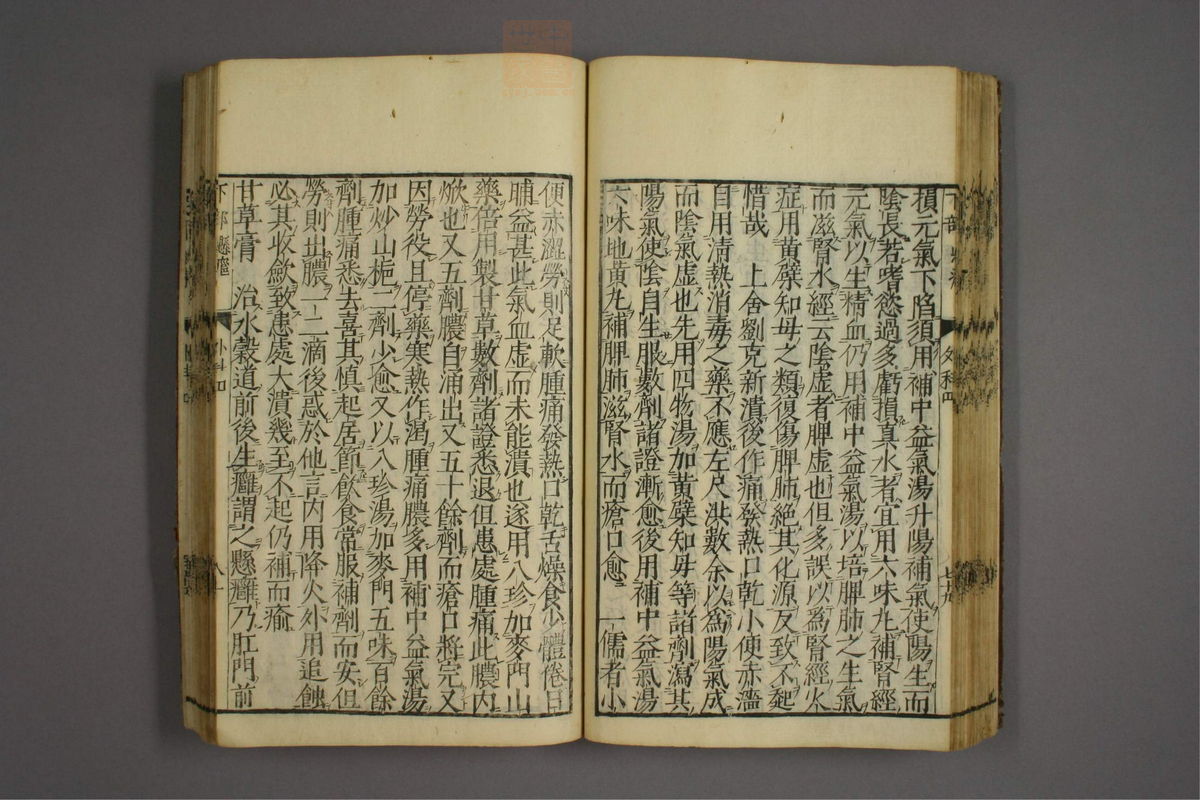 損元氣下陷須用補中益氣湯升陽補氣使陽生而
陰長若嗜慾過多虧損真水者宜用六味丸補腎經
元氣以生精血仍用補中益氣湯以培脾肺之生氣
而滋腎水經云陰虛者脾虛也但多誤以爲腎經火
症用黃蘗知母之類復傷脾肺絕其化源反致不起
惜哉　上舍劉克新潰後作痛發熱口乾小便赤濇
自用清熱消毒之藥不應左尺洪數余以爲陽氣成
而陰氣虛也先用四物湯加黃蘗知母等諸劑瀉其
陽氣使陰自生服數劑諸證漸愈後用補中益氣湯
六味地黃丸補脾肺滋腎水而瘡口愈　一儒者小
便赤澀勞則足軟腫痛發熱口乾舌燥食少體倦日
晡益甚此氣血虛而未能潰也遂用八珍加麥門山
藥倍用製甘草數劑諸證悉退但患處腫痛此膿內
焮也又五劑膿自涌出又五十餘劑而瘡口將完又
因勞役且停藥寒熱作渴腫痛膿多用補中益氣湯
加炒山梔二劑少愈又以八珍湯加麥門五味百餘
劑腫痛悉去喜其慎起居節飲食常服補劑而安但
勞則出膿一二滴後惑於他言內用降火外用追蝕
必其收斂致患處大潰幾至不起仍補而瘉
甘草膏　治水穀道前後生癰謂之懸癰乃肛門前
下部　懸癰
外科四